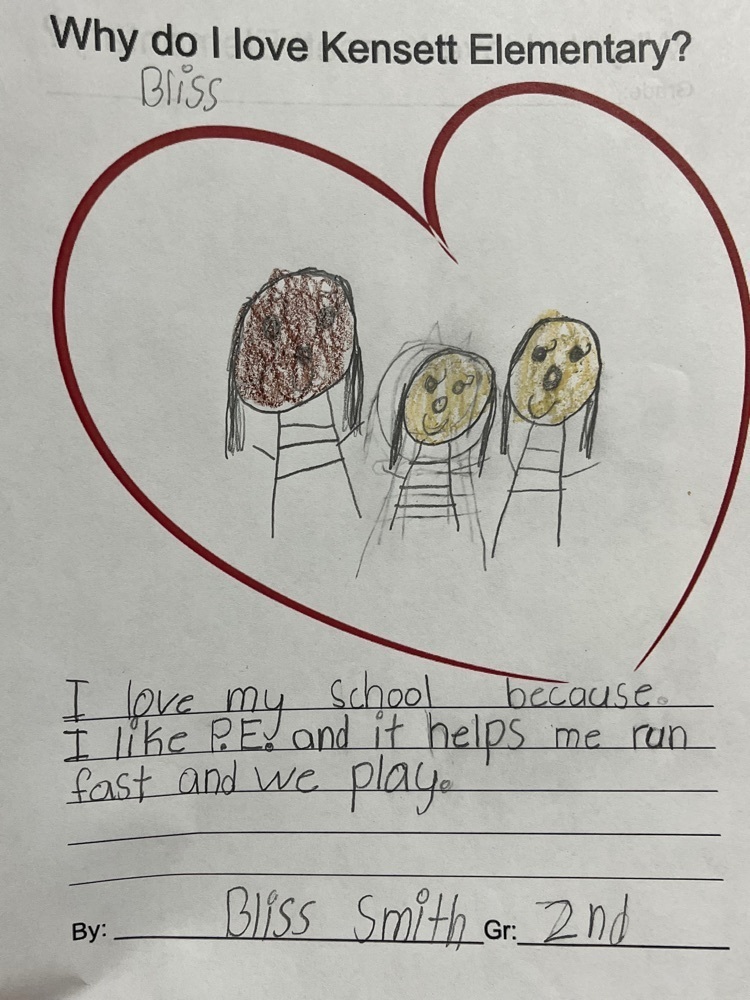 Why do I love Kensett Elementary?
Bliss
I love my school because.
I like P.E. and it helps me run
fast and we play.
By: Bliss Smith Gr: 2nd